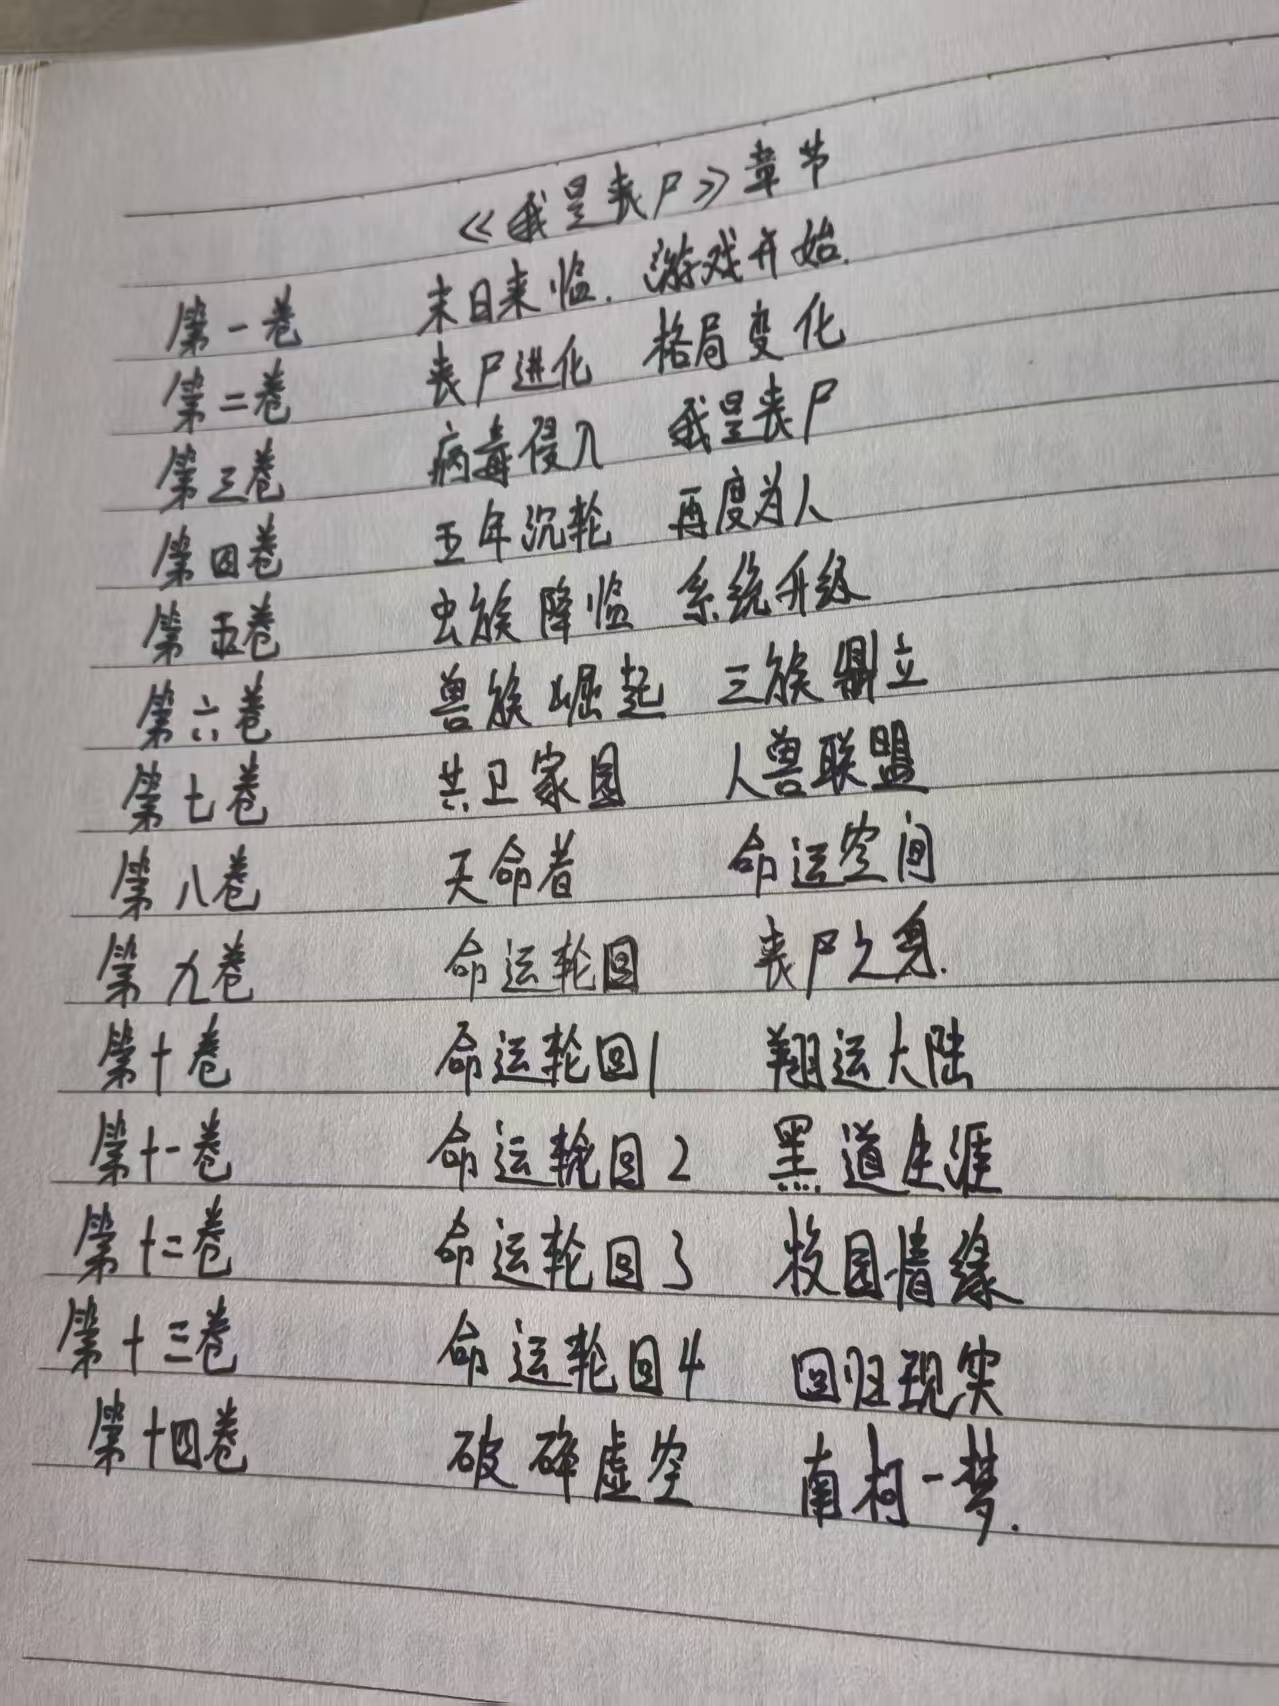 《我是丧尸》章节
第一卷 末日来临. 游戏开始.
第二卷 丧尸进化 格局变化
第三卷 病毒侵入 我是丧尸
第四卷 五年沉轮 再度为人
第五卷 虫族降临 系统升级
第六卷 兽族崛起 三族鼎立
第七卷 共卫家园 人兽联盟
第八卷 天命者 命运空间
第九卷 命运轮回 丧尸之
第十卷 命运轮回1 翔运大陆
第十一卷 命运轮回2 黑道生涯
第十二卷 命运轮回3 校园情缘
第十三卷 命运轮回4 回归现实
第十四卷 破碎虚空 南柯一梦.